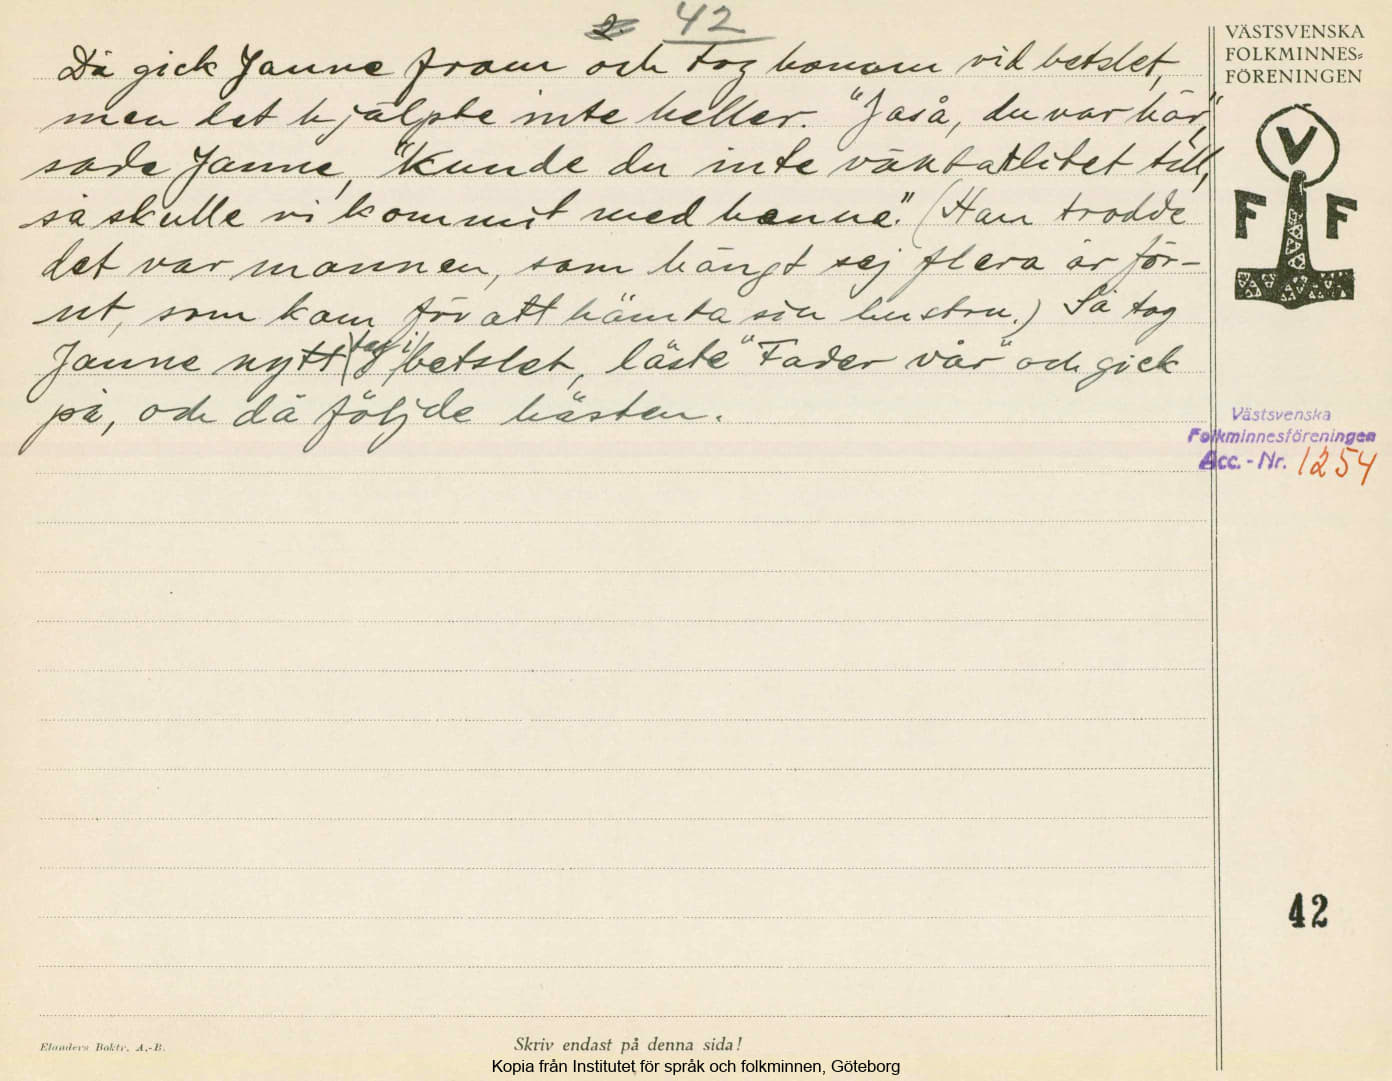 2. 42
Då gick Janne fram och tog honom vid betslet,
men det hjälpte inte heller. "Jaså, du var här,"
sade Janne, "kunde du inte väntat litet till,
så skulle vi kommit med henne." (Han trodde
det var mannen, som hängt sej flera år för-
ut, som kom för att hämta sin hustru.) Så tog
Janne nytt tag i betslet, läste "Fader vår" och gick
på, och då följde hästen.
VÄSTSVENSKA
FOLKMINNES=
FÖRENINGEN
V
F F
Västsvenska
Folkminnesföreningen
Acc.-Nr. 1254
42
Elanders Boktr. A.-B.
Skriv endast på denna sida!
Kopia från Institutet för språk och folkminnen, Göteborg